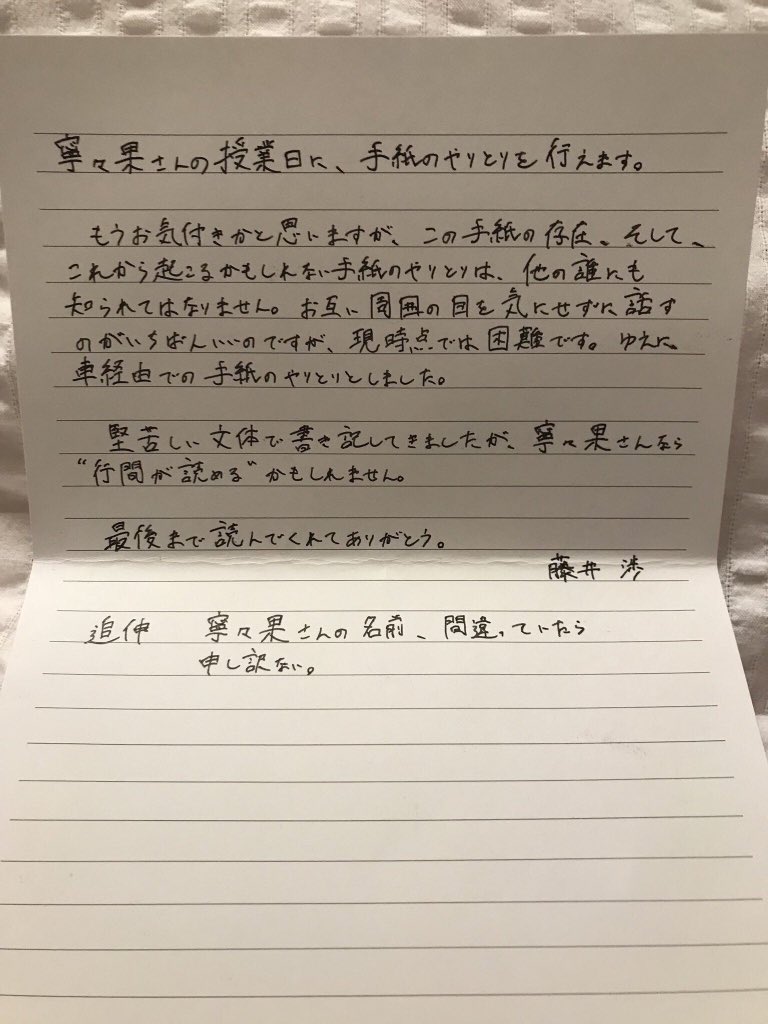 寧々果さんの授業日に、手紙のやりとりを行えます。
もうお気付きかと思いますが、この手紙の存在、そして、
これから起こるかもしれない手紙のやりとりは、他の誰にも
知られてはなりません。お互に周囲の目を気にせずに話す
のがいちばんいいのですが、現時点では困難です。ゆえに、
車経由での手紙のやりとりとしました。
堅苦しい文体で書き記してきましたが、寧々果さんなら
“行間が読める”かもしれません。
最後まで読んでくれてありがとう。
藤井 渉
追伸 寧々果さんの名前、間違っていたら
申し訳ない。